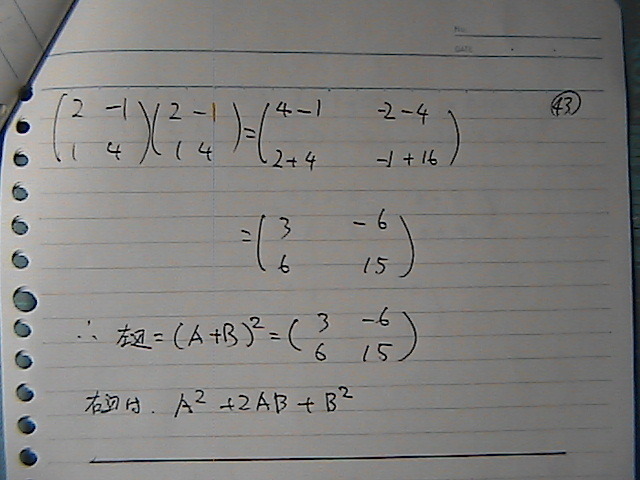 NO.
DATE
㊸
(2 -1)(2 -1)=(4-1 -2-4)
(1 4)(1 4) (2+4 -1+16)
=(3 -6)
(6 15)
∴ 左辺=(A+B)²=(3 -6)
(6 15)
右辺は. A²+2AB+B²